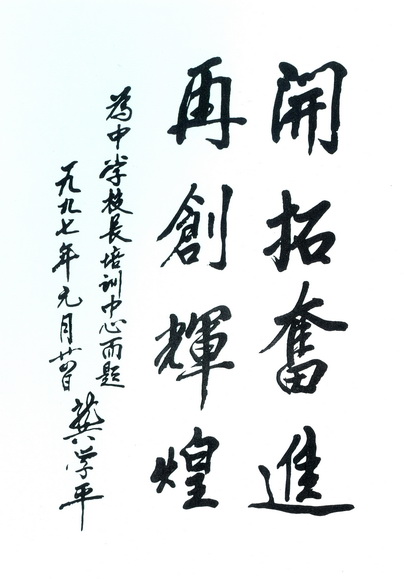 開拓奮進
再創輝煌
為中学校長培訓中心而題
一九九七年元月廿四日
龔学平